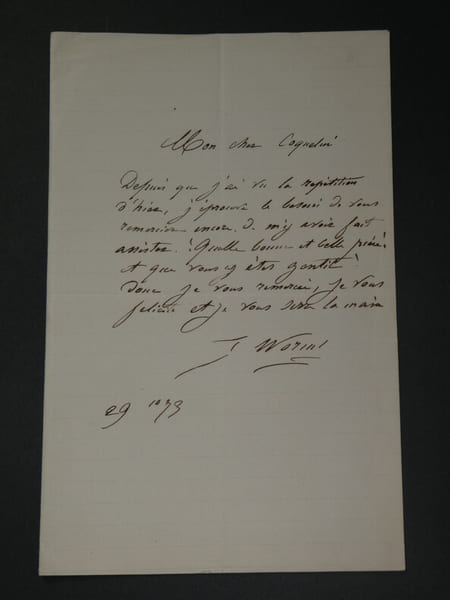 Mon cher Coquelin
Depuis que j'ai vu la répétition
d'hier, j'éprouve le besoin de vous
remercier encore de m'y avoir fait
assister. Quelle bonne et belle pièce!
Et que vous y êtes gentil!
donc je vous remercie, je vous
félicite et je vous serre la main
J Worms
29